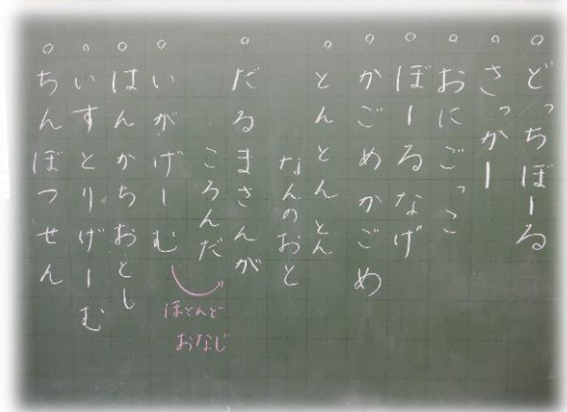 。どっちぼーる
。さっかー
。おにごっこ
。ぼーるなげ
。かごめかごめ
。とんとんとん
なんのおと
。だるまさんが
ころんだ
。いがげーむ
。はんかちおとし
。いすとりげーむ
。ちんぼつせん
ほとんど
おなじ